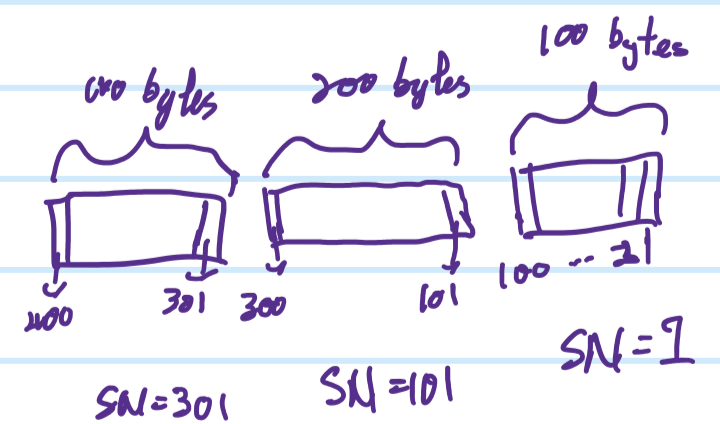 100 bytes
200 bytes
bytes
400 301 300 101 100 ... 21
SN=301 SN=101 SN=1